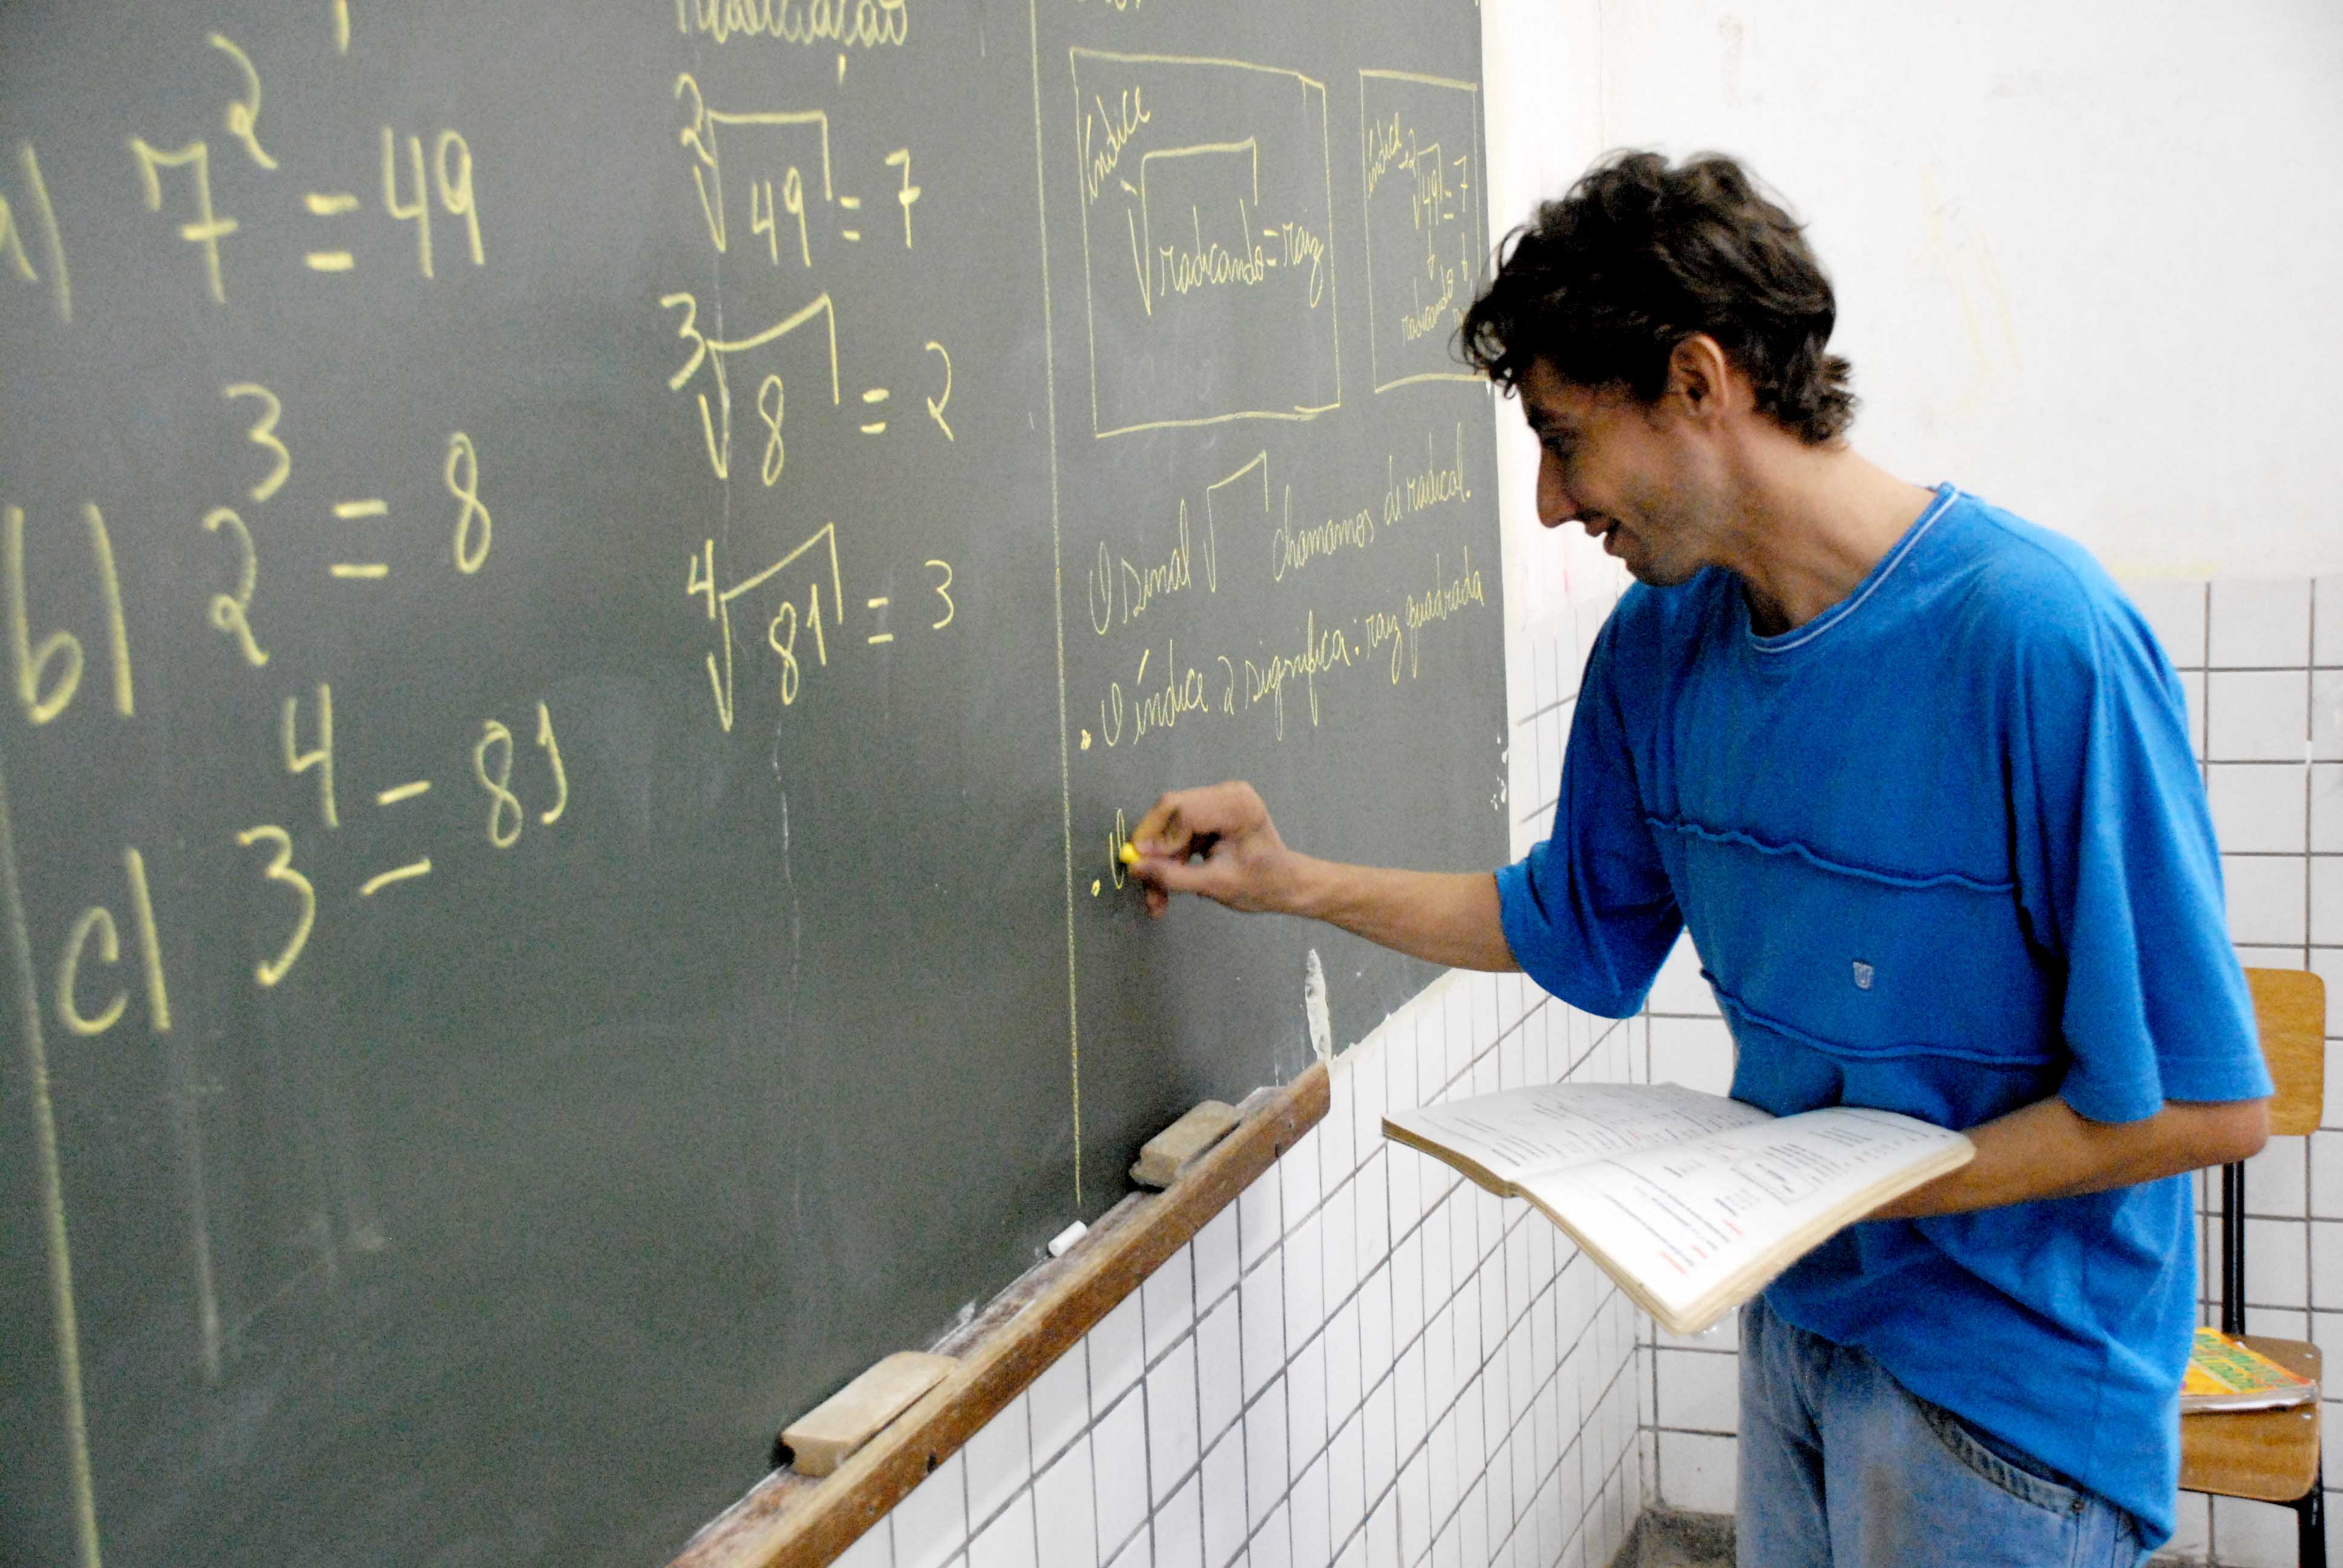 a) 7² = 49
b) 2³ = 8
c) 3⁴ = 81
Radiciação
²√49 = 7
³√8 = 2
⁴√81 = 3
índice
√radicando = raiz
índice
²√49 = 7
radicando
O sinal √ chamamos de radical.
• O índice 2 significa: raiz quadrada
• O